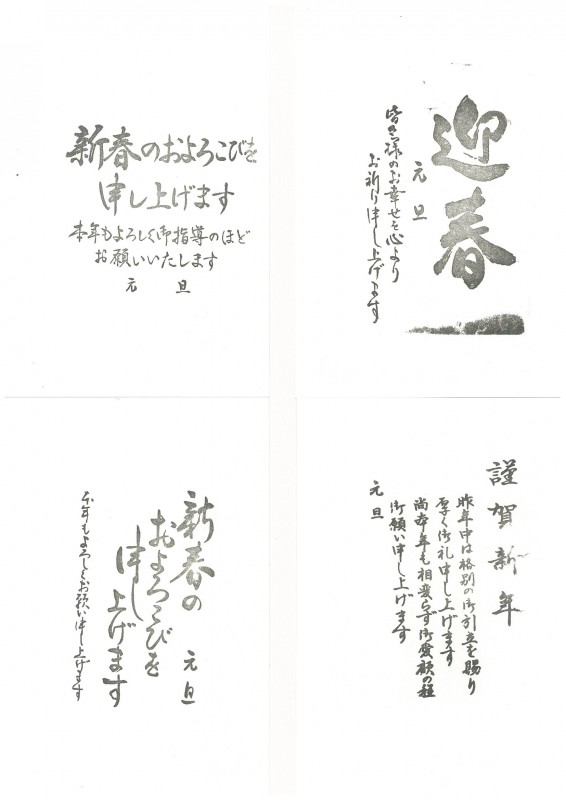 新春のおよろこびを
申し上げます
本年もよろしく御指導のほど
お願いいたします
元　旦
迎春
元旦
皆さ様のお幸せを心より
お祈り申し上げます
新春の
およろこびを
申し
上げます
元旦
本年もよろしくお願い申し上げます
謹賀新年
昨年中は格別の御引立を賜り
厚く御礼申し上げます
尚本年も相変らず御愛顧の程
御願い申し上げます
元旦